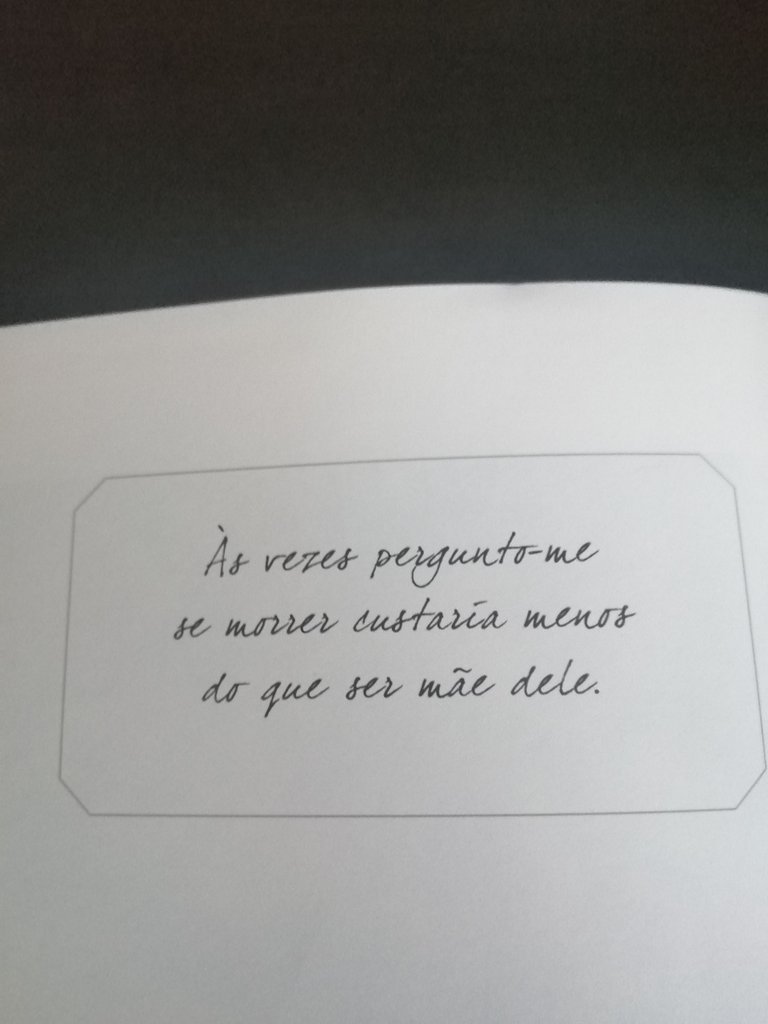 Às vezes pergunto-me
se morrer custaria menos
do que ser mãe dele.